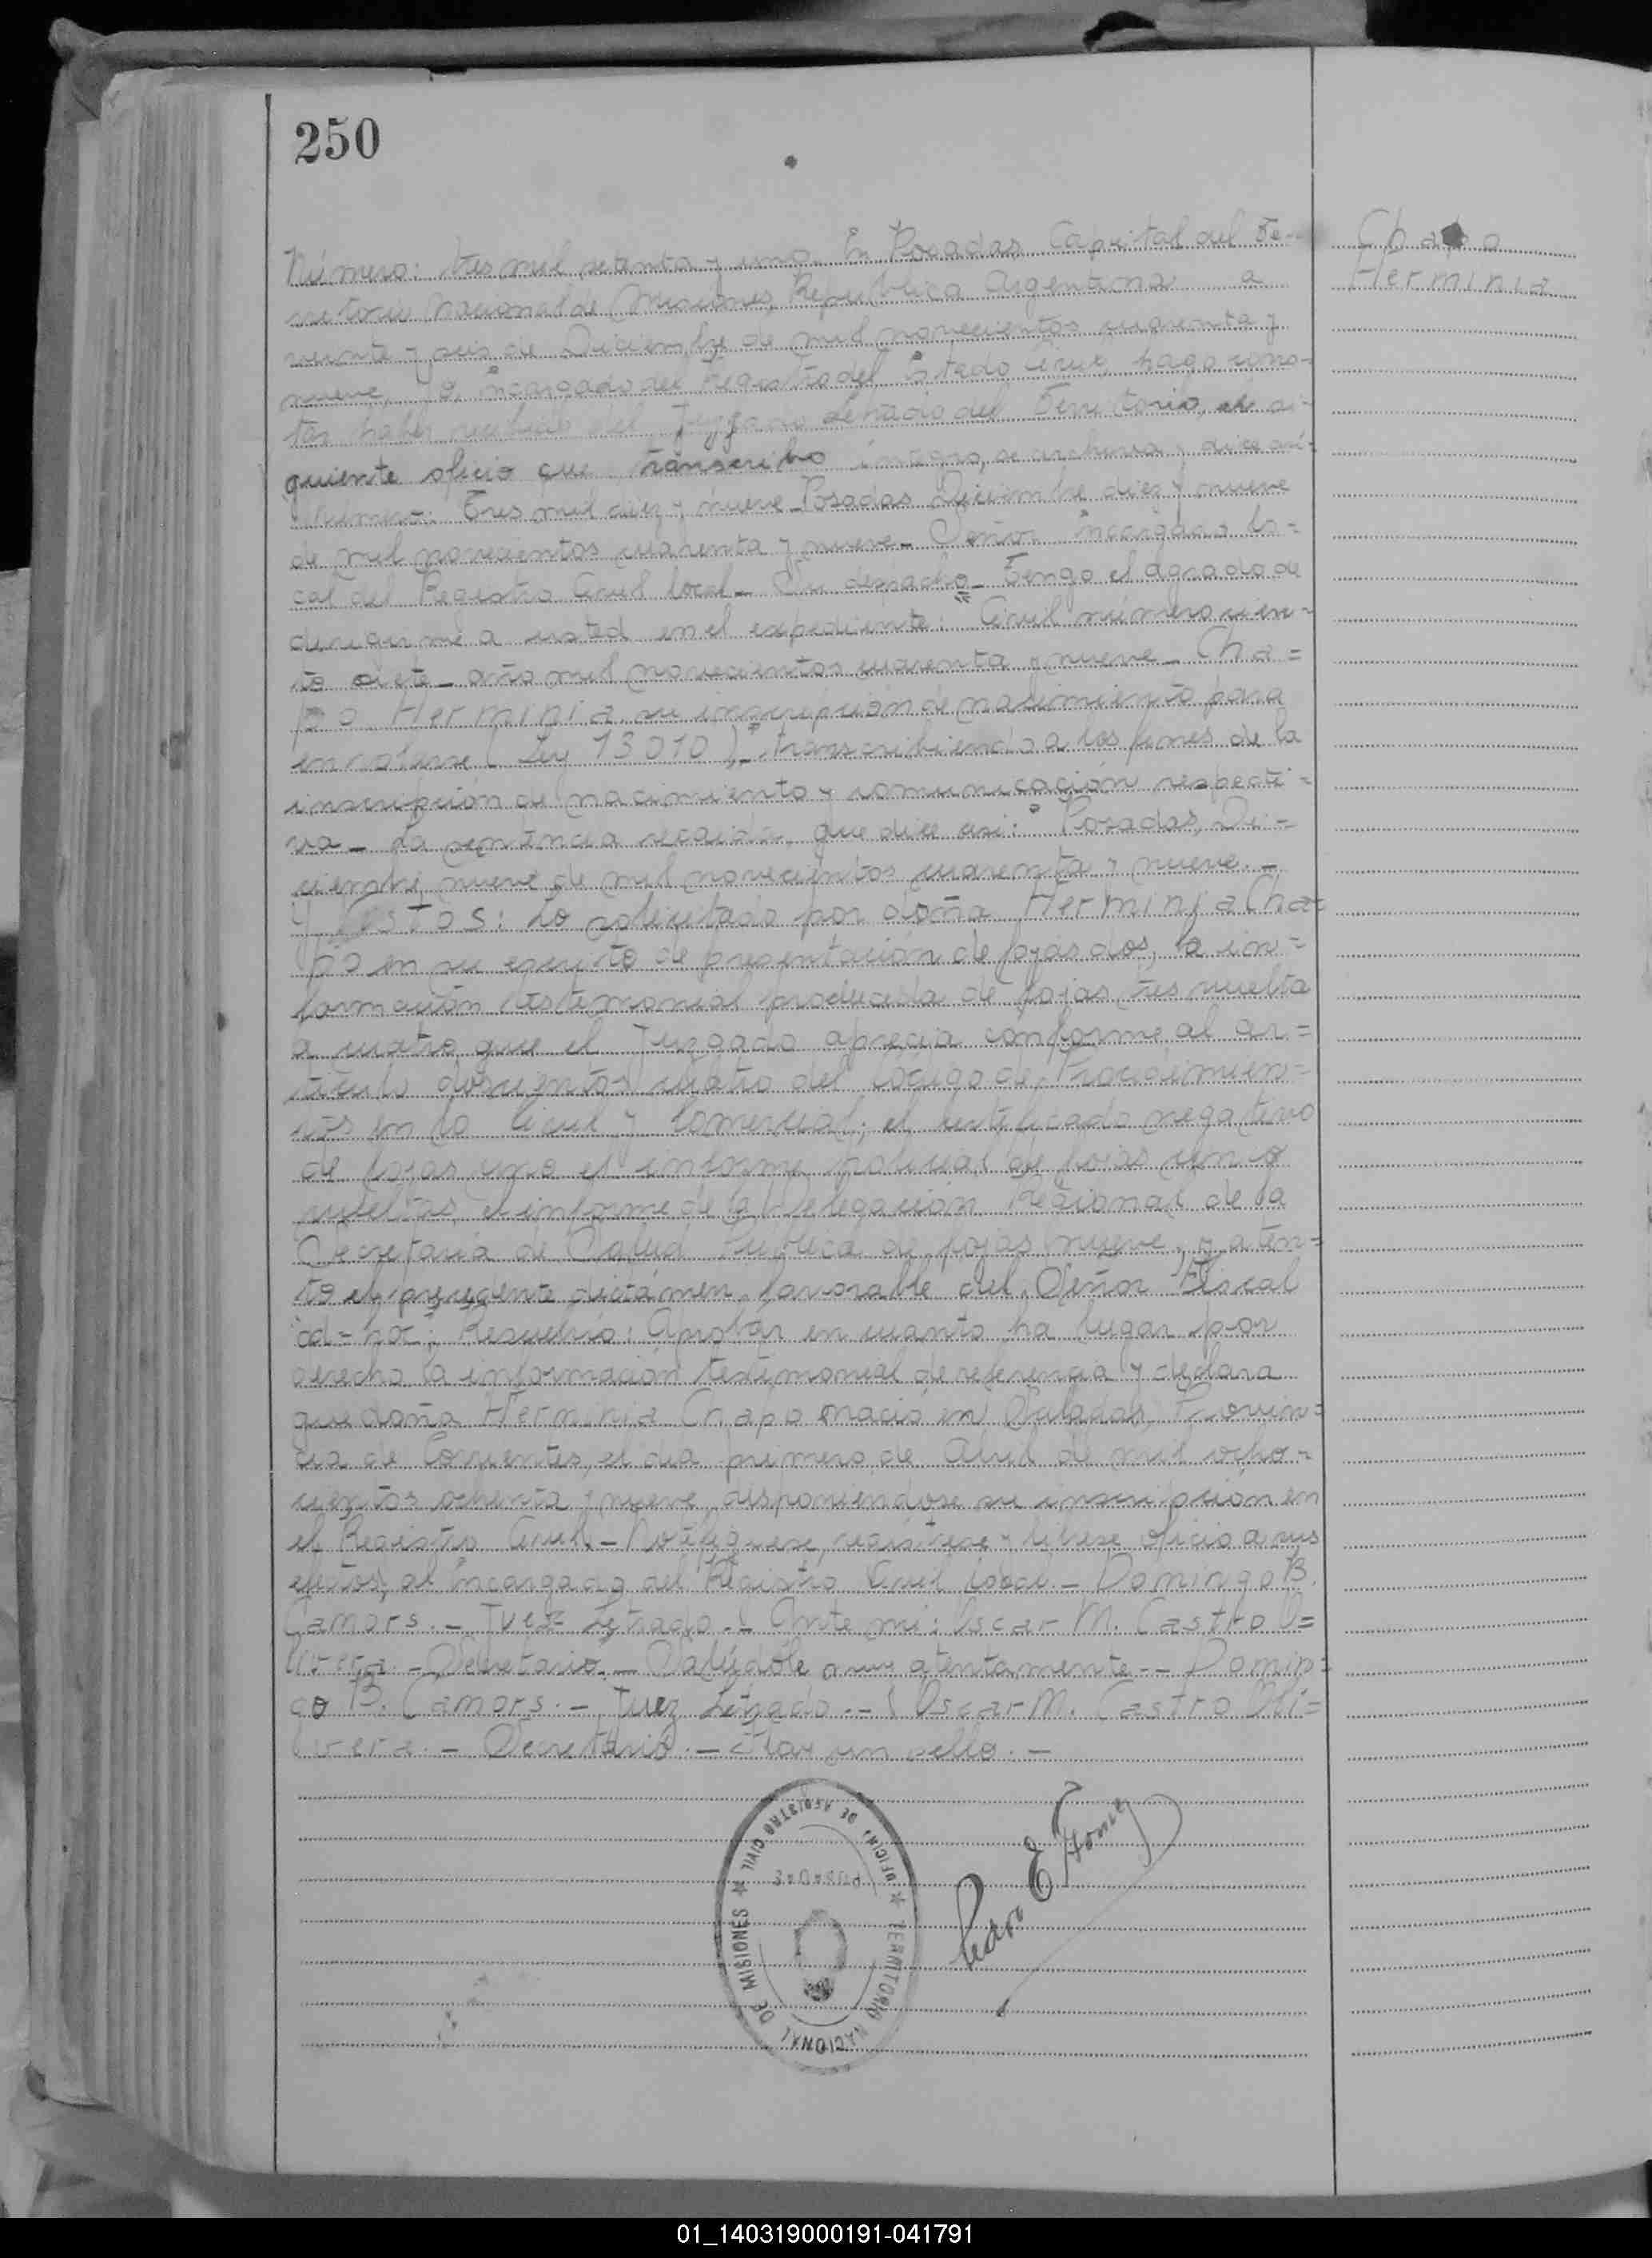 250
Chapo
Herminia
Número: tres mil setenta y uno. En Posadas, Capital del Te-
rritorio Nacional de Misiones, República Argentina a
veinte y seis de Diciembre de mil novecientos cuarenta y
nueve, Yo, Encargado del Registro del Estado Civil, hago cons-
tar haber recibido del Juzgado Letrado del Territorio, el si-
guiente oficio que transcribo íntegro, se archiva y dice así:
Número: Tres mil diez y nueve. Posadas Diciembre diez y nueve
de mil novecientos cuarenta y nueve.- Señor Encargado lo=
cal del Registro Civil local.- Su despacho.- Tengo el agrado de
dirigirme a usted en el expediente: Civil número cien-
to siete - año mil novecientos cuarenta y nueve - Cha=
po Herminia su inscripción de nacimiento para
enrolarse (Ley 13010)", transcribiendo a los fines de la
inscripción de nacimiento y comunicación respecti=
va - La sentencia recaida, que dice así: "Posadas, Di-
ciembre nueve de mil novecientos cuarenta y nueve.-
Y VISTOS: Lo solicitado por doña Herminia Cha=
po en su escrito de presentación de fojas dos, la in=
formación testimonial producida de fojas tres vuelta
a cuatro que el Juzgado aprecia conforme al ar=
tículo doscientos cuatro del Código de Procedimien=
tos en lo Civil y Comercial; el certificado negativo
de fojas uno el informe policial de fojas uno
vueltas, el informe de la Delegación Regional de la
Secretaría de Salud Pública de fojas nueve, y aten=
to el precedente dictámen favorable del Señor Fiscal
ad=hoc; Resuelvo: Aprobar en cuanto ha lugar por
derecho la información testimonial de referencia y declara
que doña Herminia Chapo nació en Saladas, Provin=
cia de Corrientes, el día primero de Abril de mil ocho-
cientos ochenta y nueve, disponiéndose su inscripción en
el Registro Civil.- Notifíquese, regístrese y líbrese oficio a sus
efectos, al Encargado del Registro Civil local.- Domingo B.
Camors.- Juez Letrado.- Ante mí: Oscar M. Castro O=
livera.- Secretario.- Salúdole muy atentamente.-- Domin=
go B. Camors.- Juez Letrado.-- Oscar M. Castro Oli=
vera.- Secretario.- Hay un sello.-
OFICINA DE REGISTRO CIVIL
POSADAS
TERRITORIO NACIONAL DE MISIONES
Pedro E.
01_140319000191-041791